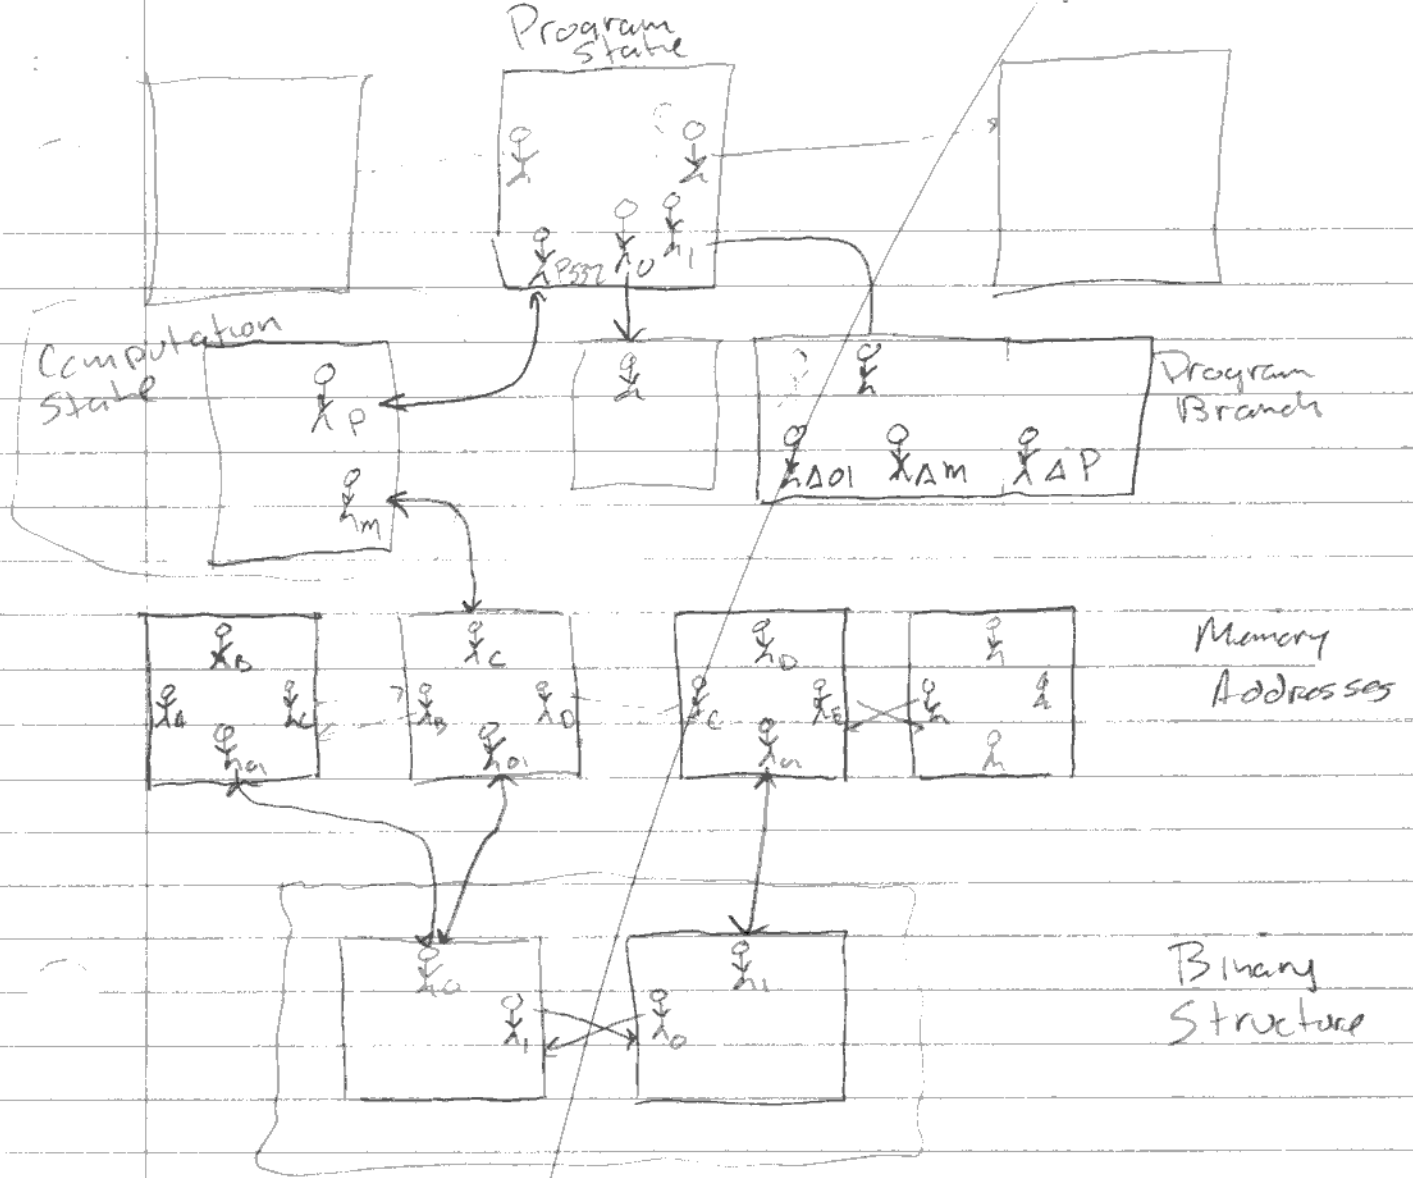 Program
State
P
0
1
Computation
State
P
m
Program
Branch
Δ01
Δm
ΔP
Memory
Addresses
B
A
C
01
C
B
D
01
D
C
E
01
Binary
Structure
0
1
1
0